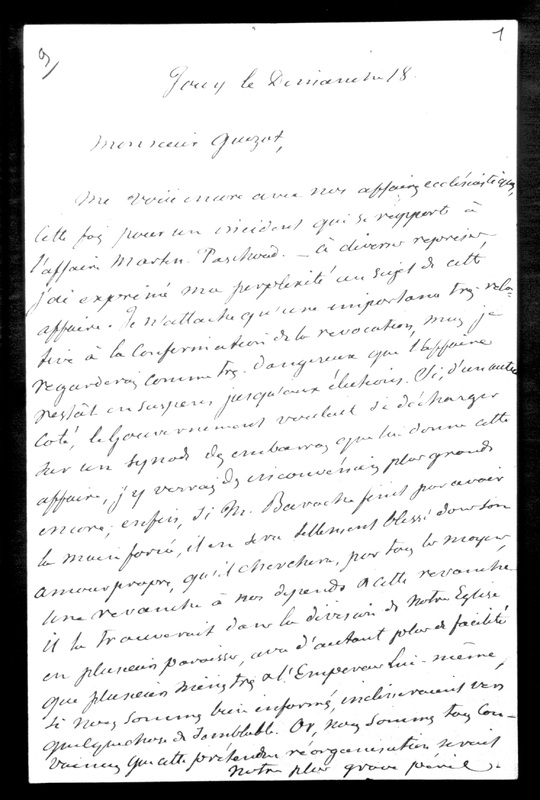 9/
1
Jouy le Dimanche 18.
Monsieur Guizot,
Me voici encore avec nos affaires ecclésiastiques,
cette fois pour un incident qui se rapporte à
l'affaire Martin-Paschoud. — à diverses reprises,
j'ai exprimé ma perplexité au sujet de cette
affaire. Je n'attache qu'une importance très-rela-
tive à la confirmation de la révocation, mais je
regarderais comme très-dangereux que l'affaire
restât en suspens jusqu'aux élections. Si, d'un autre
côté, le Gouvernement voulait se décharger
sur un synode des embarras que lui donne cette
affaire, j'y verrais des inconvénients plus grands
encore; enfin, si M. Baroche finit par avoir
la main forcée, il en sera tellement blessé dans son
amour propre, qu'il cherchera, par tous les moyens,
une revanche à nos dépends & cette revanche
il la trouverait dans la division de notre Eglise
en plusieurs paroisses, avec d'autant plus de facilité
que plusieurs ministres & l'Empereur lui-même,
si nous sommes bien informés, inclineraient vers
quelque chose de semblable. Or, nous sommes tous con-
vaincus que cette prétendue réorganisation serait
notre plus grave péril.